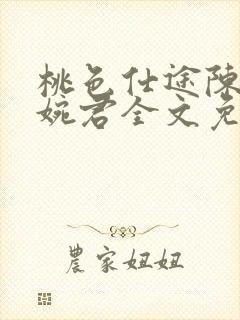 桃色仕途陈
婉君全文免
農家妞妞